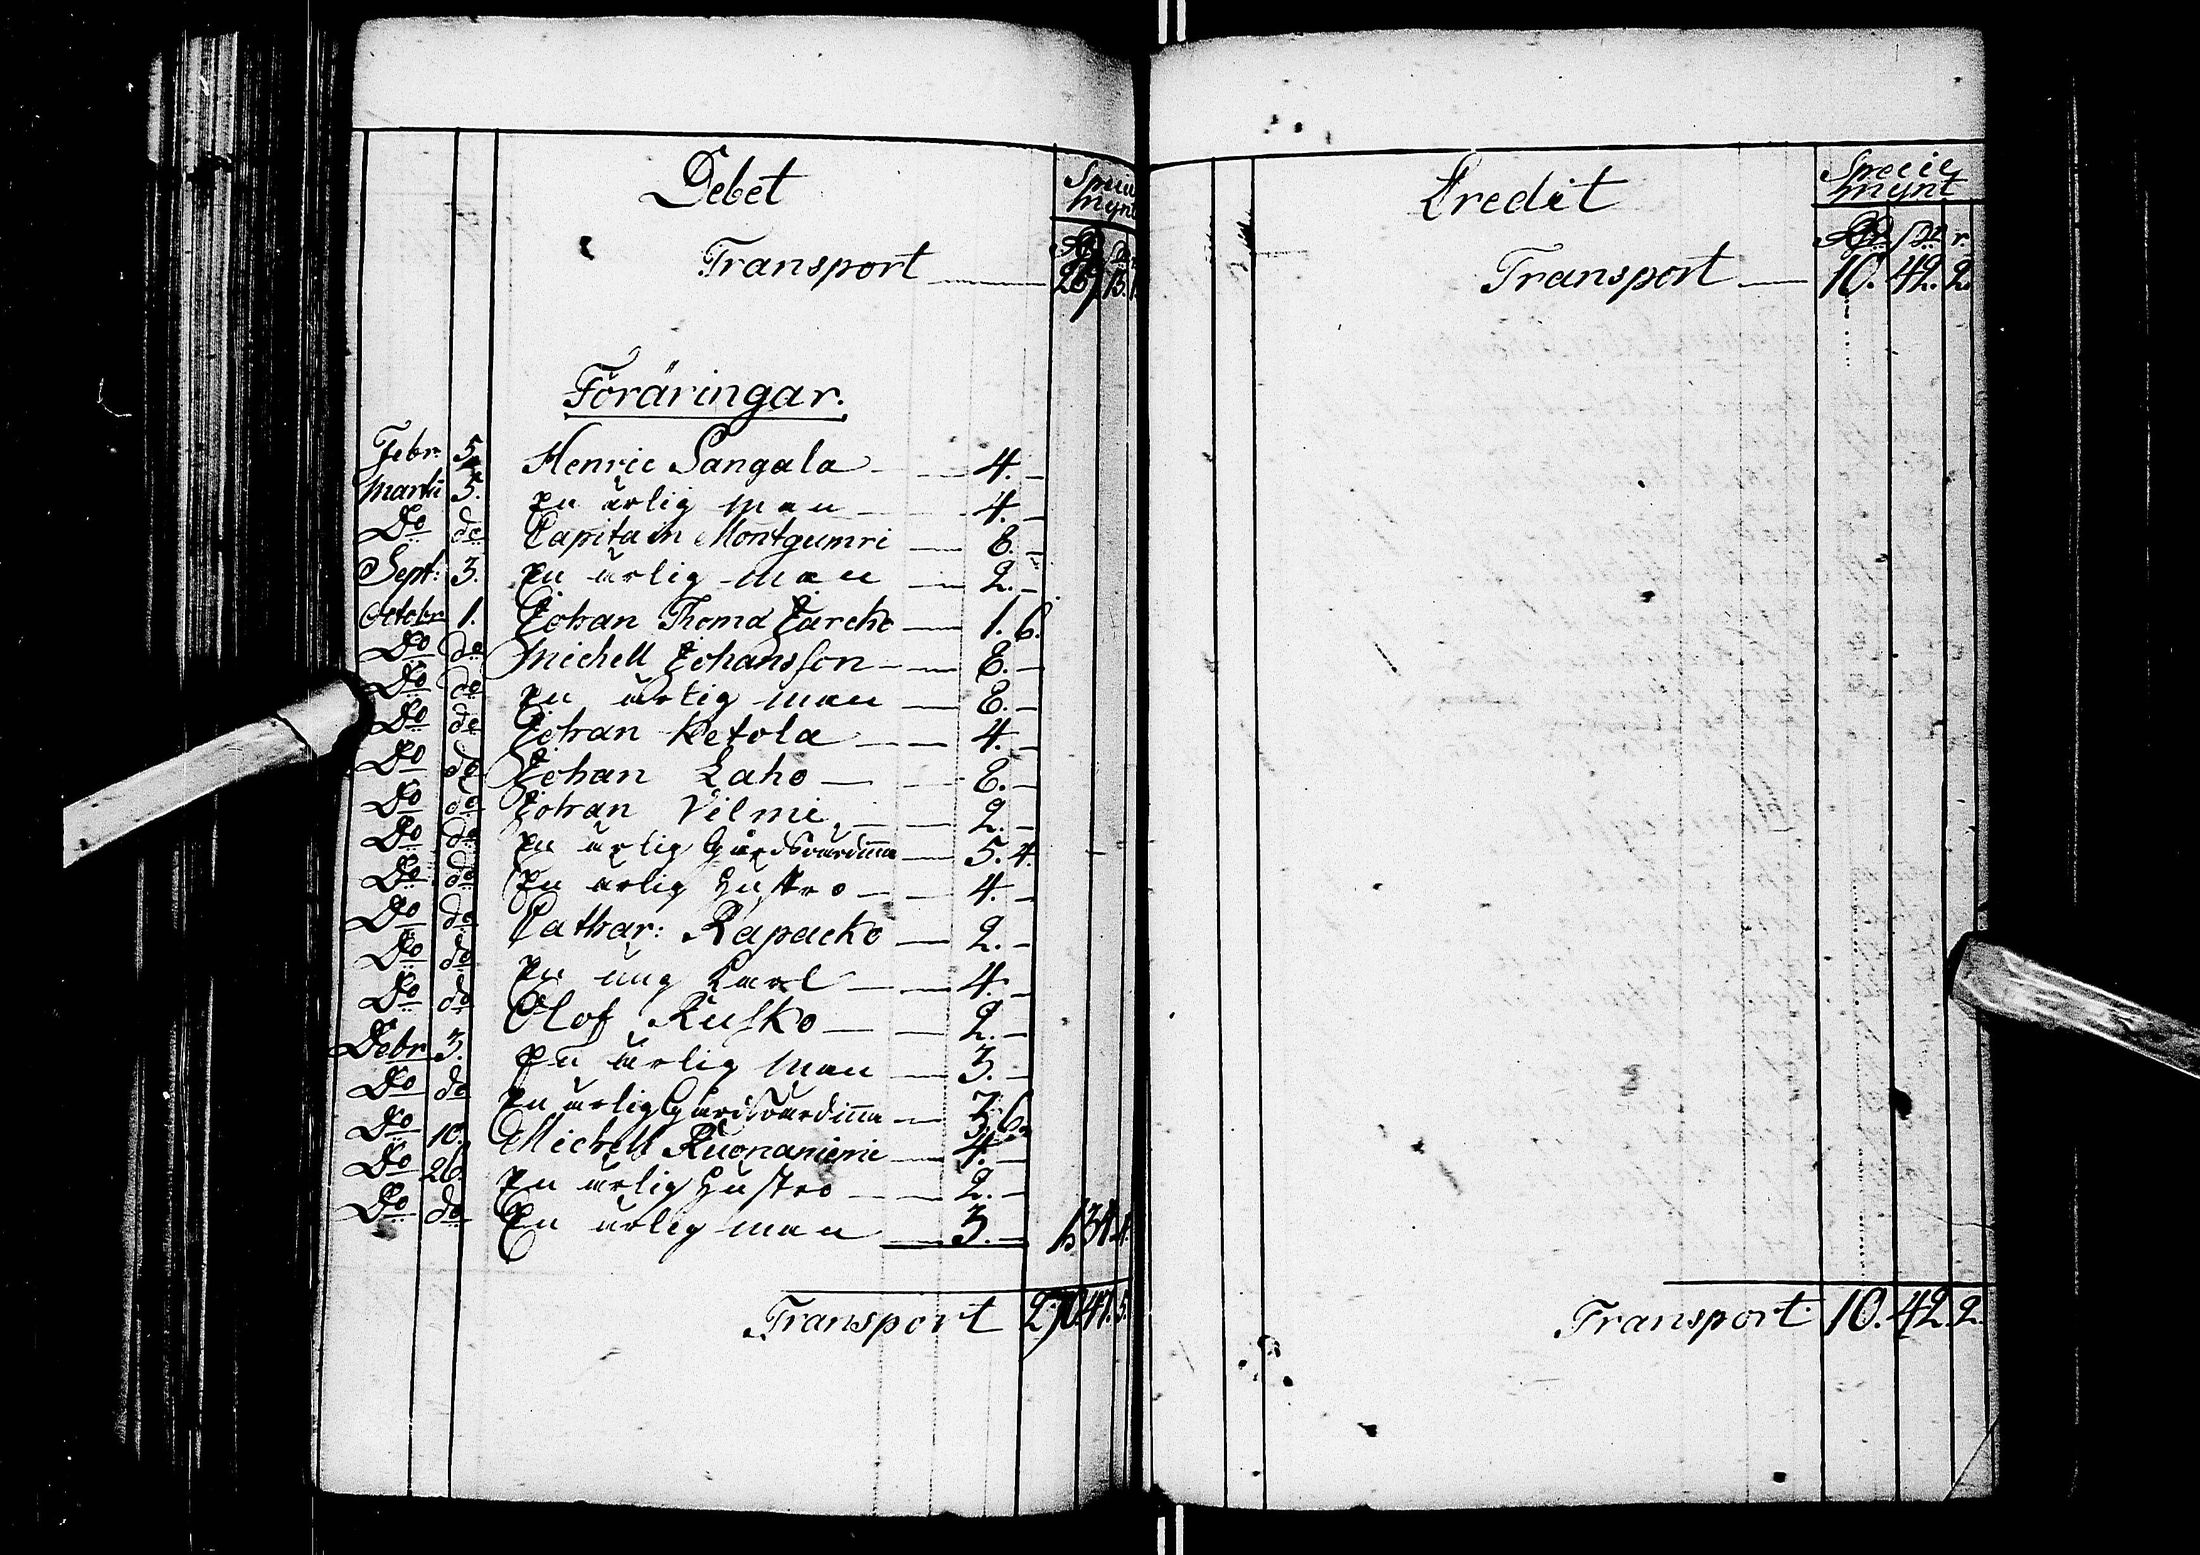 Debet
Specie
mynt
Rd sk r
Transport 13.
Föräringar.
Febr. 5. Henric Sangala 4. —
Martii 5. En ärlig man 4. —
Do do Capitain Montgumri 8. —
Sept: 3. En ärlig man 2. —
Octobr 1. Johan Thoma Jarcko 1. 6.
Do do Michell Johansson 8. —
Do do En ärlig man 8. —
Do do Johan Ketola 4. —
Do do Johan Laho 8. —
Do do Johan Vilmi 2. —
Do do En ärlig Gårdsvärdinna 5. 4.
Do do En ärlig Hustro 4. —
Do do Cathar: Rapacko 2. —
Do do En ung Karl 4. —
Do do Olof Rusko 2. —
Debr 3. En ärlig man 3. —
Do do En ärlig Gårdsvärdinna 3. 6.
Do 10. Michell Kuonaniemi 4. —
Do 26. En ärlig Hustro 2. —
Do do En ärlig man 3. — 1. 34. 4.
Transport 5.
Credit
Specie
mynt
Rd sk r.
Transport 10. 42. 2.
Transport 10. 42. 2.